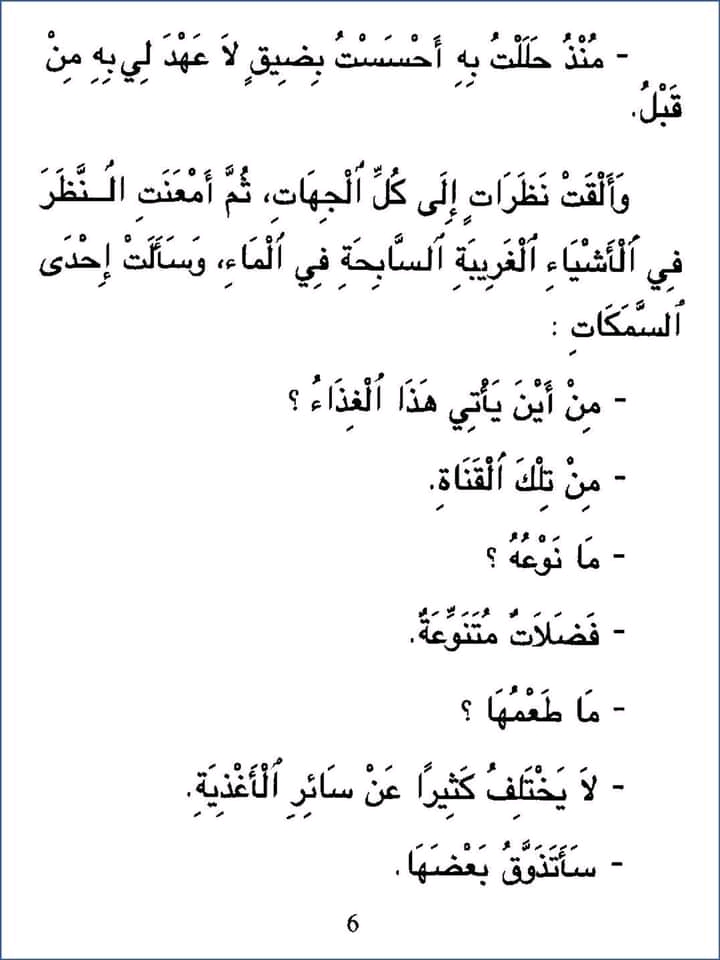 - مُنْذُ حَلَلْتُ بِهِ أَحْسَسْتُ بِضِيقٍ لاَ عَهْدَ لِي بِهِ مِنْ
قَبْلُ.
وَأَلْقَتْ نَظَرَاتٍ إِلَى كُلِّ ٱلْجِهَاتِ، ثُمَّ أَمْعَنَتِ ٱلـنَّظَرَ
فِي ٱلْأَشْيَاءِ ٱلْغَرِيبَةِ ٱلسَّابِحَةِ فِي ٱلْمَاءِ، وَسَأَلَتْ إِحْدَى
ٱلسَّمَكَاتِ :
- مِنْ أَيْنَ يَأْتِي هَذَا ٱلْغِذَاءُ ؟
- مِنْ تِلْكَ ٱلْقَنَاةِ.
- مَا نَوْعُهُ ؟
- فَضَلاَتٌ مُتَنَوِّعَةٌ.
- مَا طَعْمُهَا ؟
- لاَ يَخْتَلِفُ كَثِيرًا عَنْ سَائِرِ ٱلْأَغْذِيَةِ.
- سَأَتَذَوَّقُ بَعْضَهَا.
6